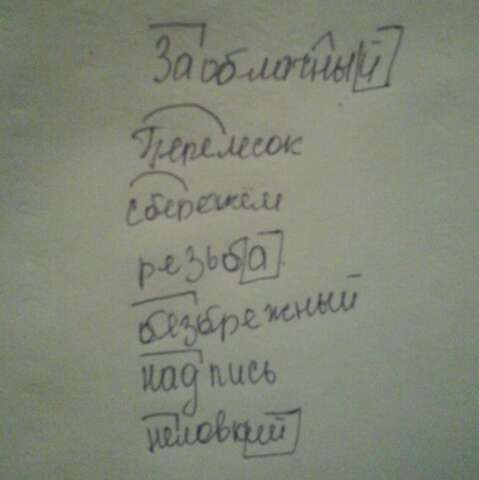 Заоблачный
Перелесок
сбережём
резьба
безбрежный
надпись
неловкий